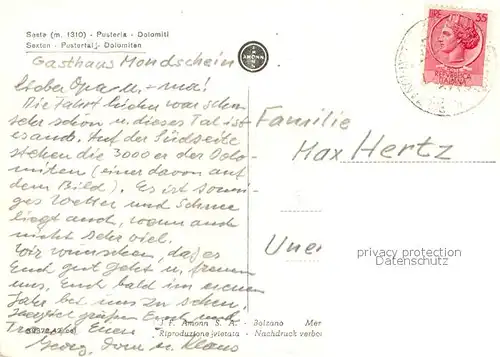 Sesto (m. 1310) - Pusteria - Dolomiti
Sexten - Pustertal - Dolomiten
Gasthaus Mondschein
Lieber Opa u. -ma!
Die Fahrt hierher war schon
sehr schön u. dieses Tal ist
es auch. Auf der Südseite
stehen die 3000er der Dolo-
miten (einer davon auf
dem Bild). Es ist sonni-
ges Wetter und Schnee
liegt auch, wenn auch
nicht sehr viel.
Wir wünschen, daß es
Euch gut geht u. freuen
uns, Euch bald im neuen
Jahr bei uns zu sehen.
Herzlich grüßen Euch
Eure
Georg, u. Klaus
AMONN
LIRE 35
REPUBBLICA
ITALIANA
Familie
Max Hertz
Unter
privacy protection
Datenschutz
J. F. Amonn S. A. - Bolzano
Riproduzione vietata - Nachdruck verbo